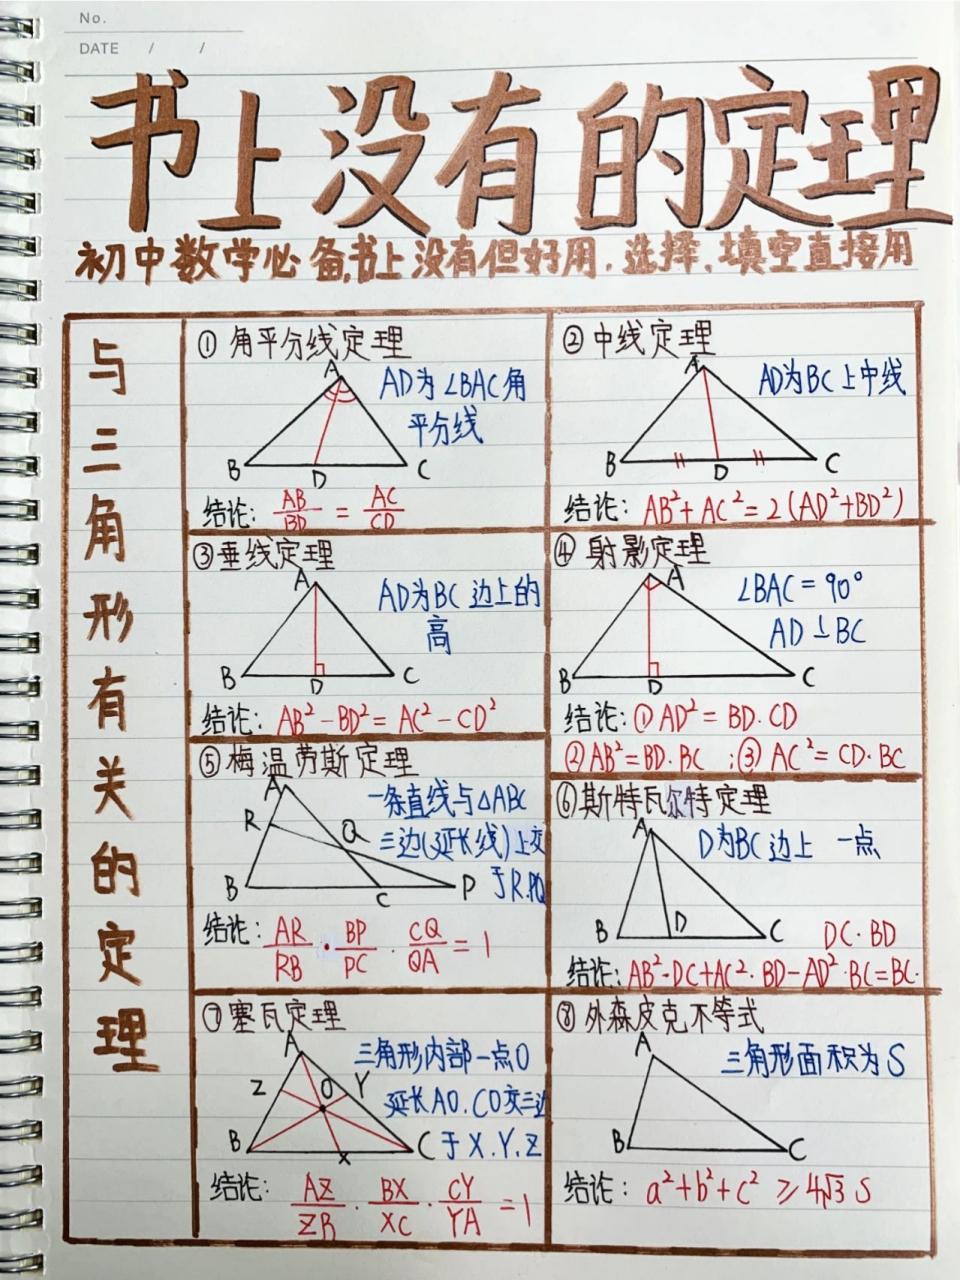 No.
DATE / /
书上没有的定理
初中数学必备,书上没有但好用.选择、填空直接用
与三角形有关的定理
① 角平分线定理
A
B
D
C
AD为∠BAC角
平分线
结论: AB/BD = AC/CD
② 中线定理
A
B
D
C
AD为BC上中线
结论: AB²+AC²=2(AD²+BD²)
③垂线定理
A
B
D
C
AD为BC边上的
高
结论: AB²-BD²=AC²-CD²
④ 射影定理
A
B
D
C
∠BAC=90°
AD⊥BC
结论:①AD²=BD·CD
②AB²=BD·BC ;③AC²=CD·BC
⑤梅温劳斯定理
A
R
Q
B
C
P
一条直线与△ABC
三边(延长线)上交
于R.PQ
结论: AR/RB · BP/PC · CQ/QA = 1
⑥斯特瓦尔特定理
A
B
D
C
D为BC边上 一点
DC·BD
结论:AB²·DC+AC²·BD-AD²·BC=BC·
⑦塞瓦定理
A
Z
O
Y
B
X
C
三角形内部一点O
延长AO.CO交三边
于X.Y.Z
结论: AZ/ZB · BX/XC · CY/YA =1
⑧外森皮克不等式
A
B
C
三角形面积为S
结论: a²+b²+c² ≥4√3 S